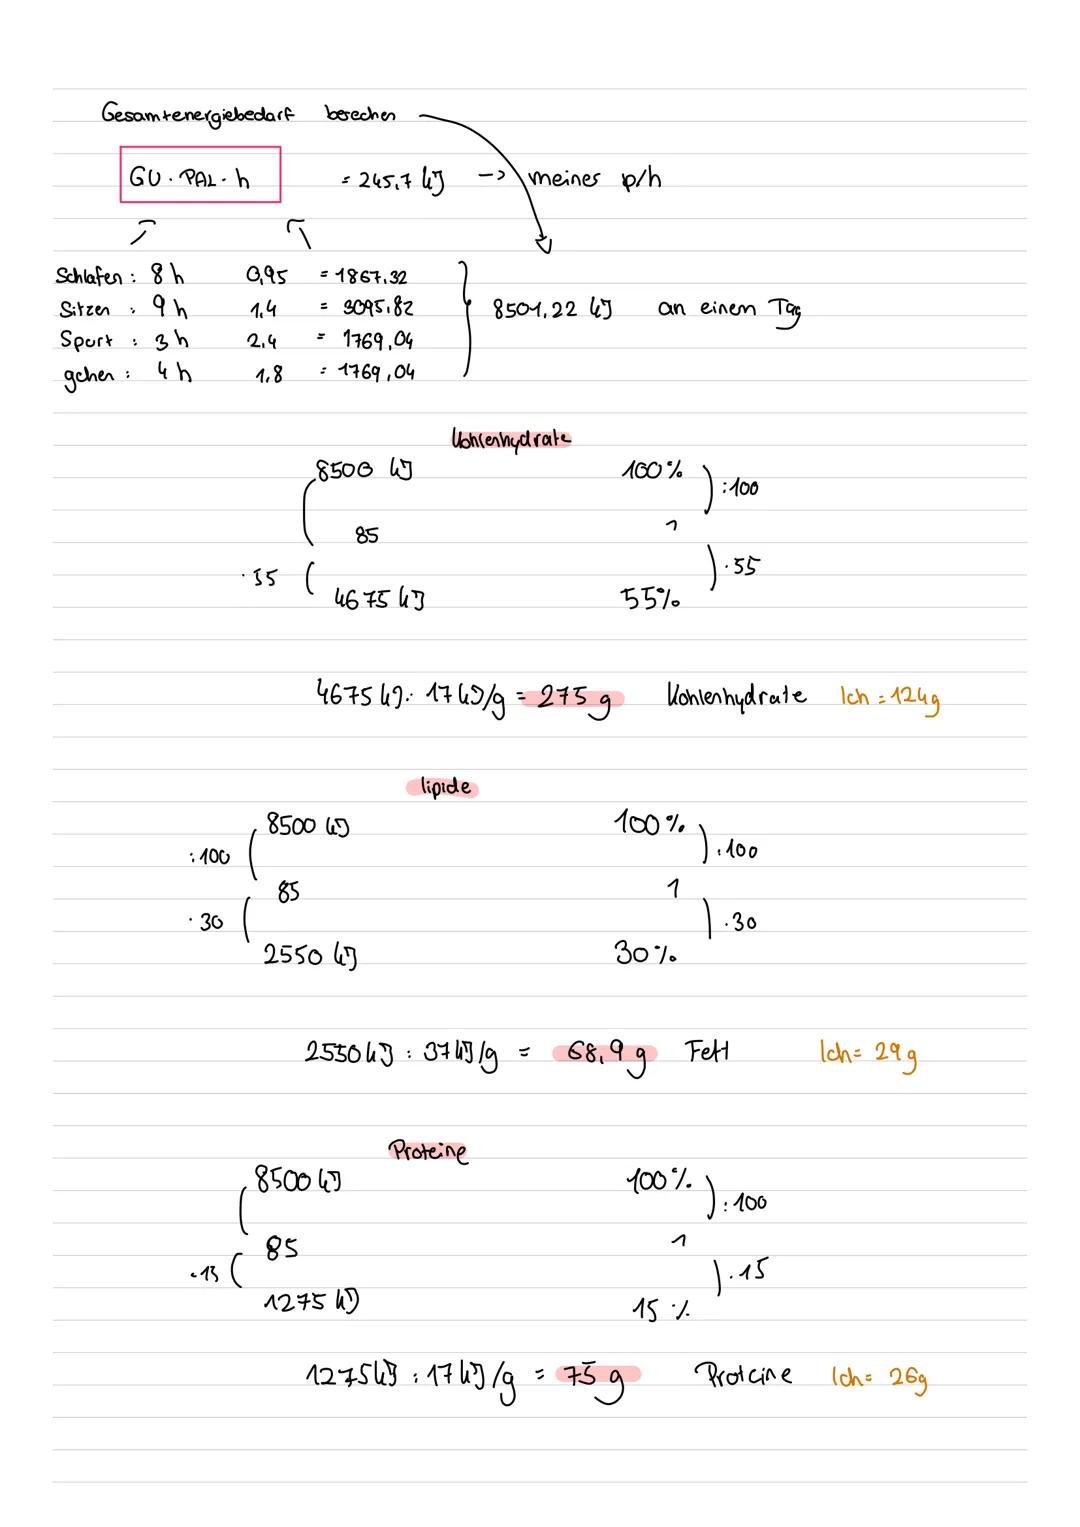 Gesamtenergiebedarf berechen
GU · PAL · h = 245,7 kJ -> meines p/h
Schlafen : 8 h 0,95 = 1867,32
Sitzen : 9 h 1,4 = 3095,82
8501,22 kJ an einem Tag
Sport : 3 h 2,4 = 1769,04
gehen : 4 h 1,8 = 1769,04
Kohlenhydrate
8500 kJ 100%
:100
85 1
·55 ·55
4675 kJ 55%
4675 kJ : 17 kJ/g = 275 g Kohlenhydrate Ich = 124g
lipide
8500 kJ 100%
:100 :100
85 1
·30 ·30
2550 kJ 30%
2550 kJ : 37 kJ/g = 68,9 g Fett Ich = 29g
Proteine
8500 kJ 100%
:100
85 1
·15 ·15
1275 kJ 15 %
1275 kJ : 17 kJ/g = 75 g Proteine Ich = 26g